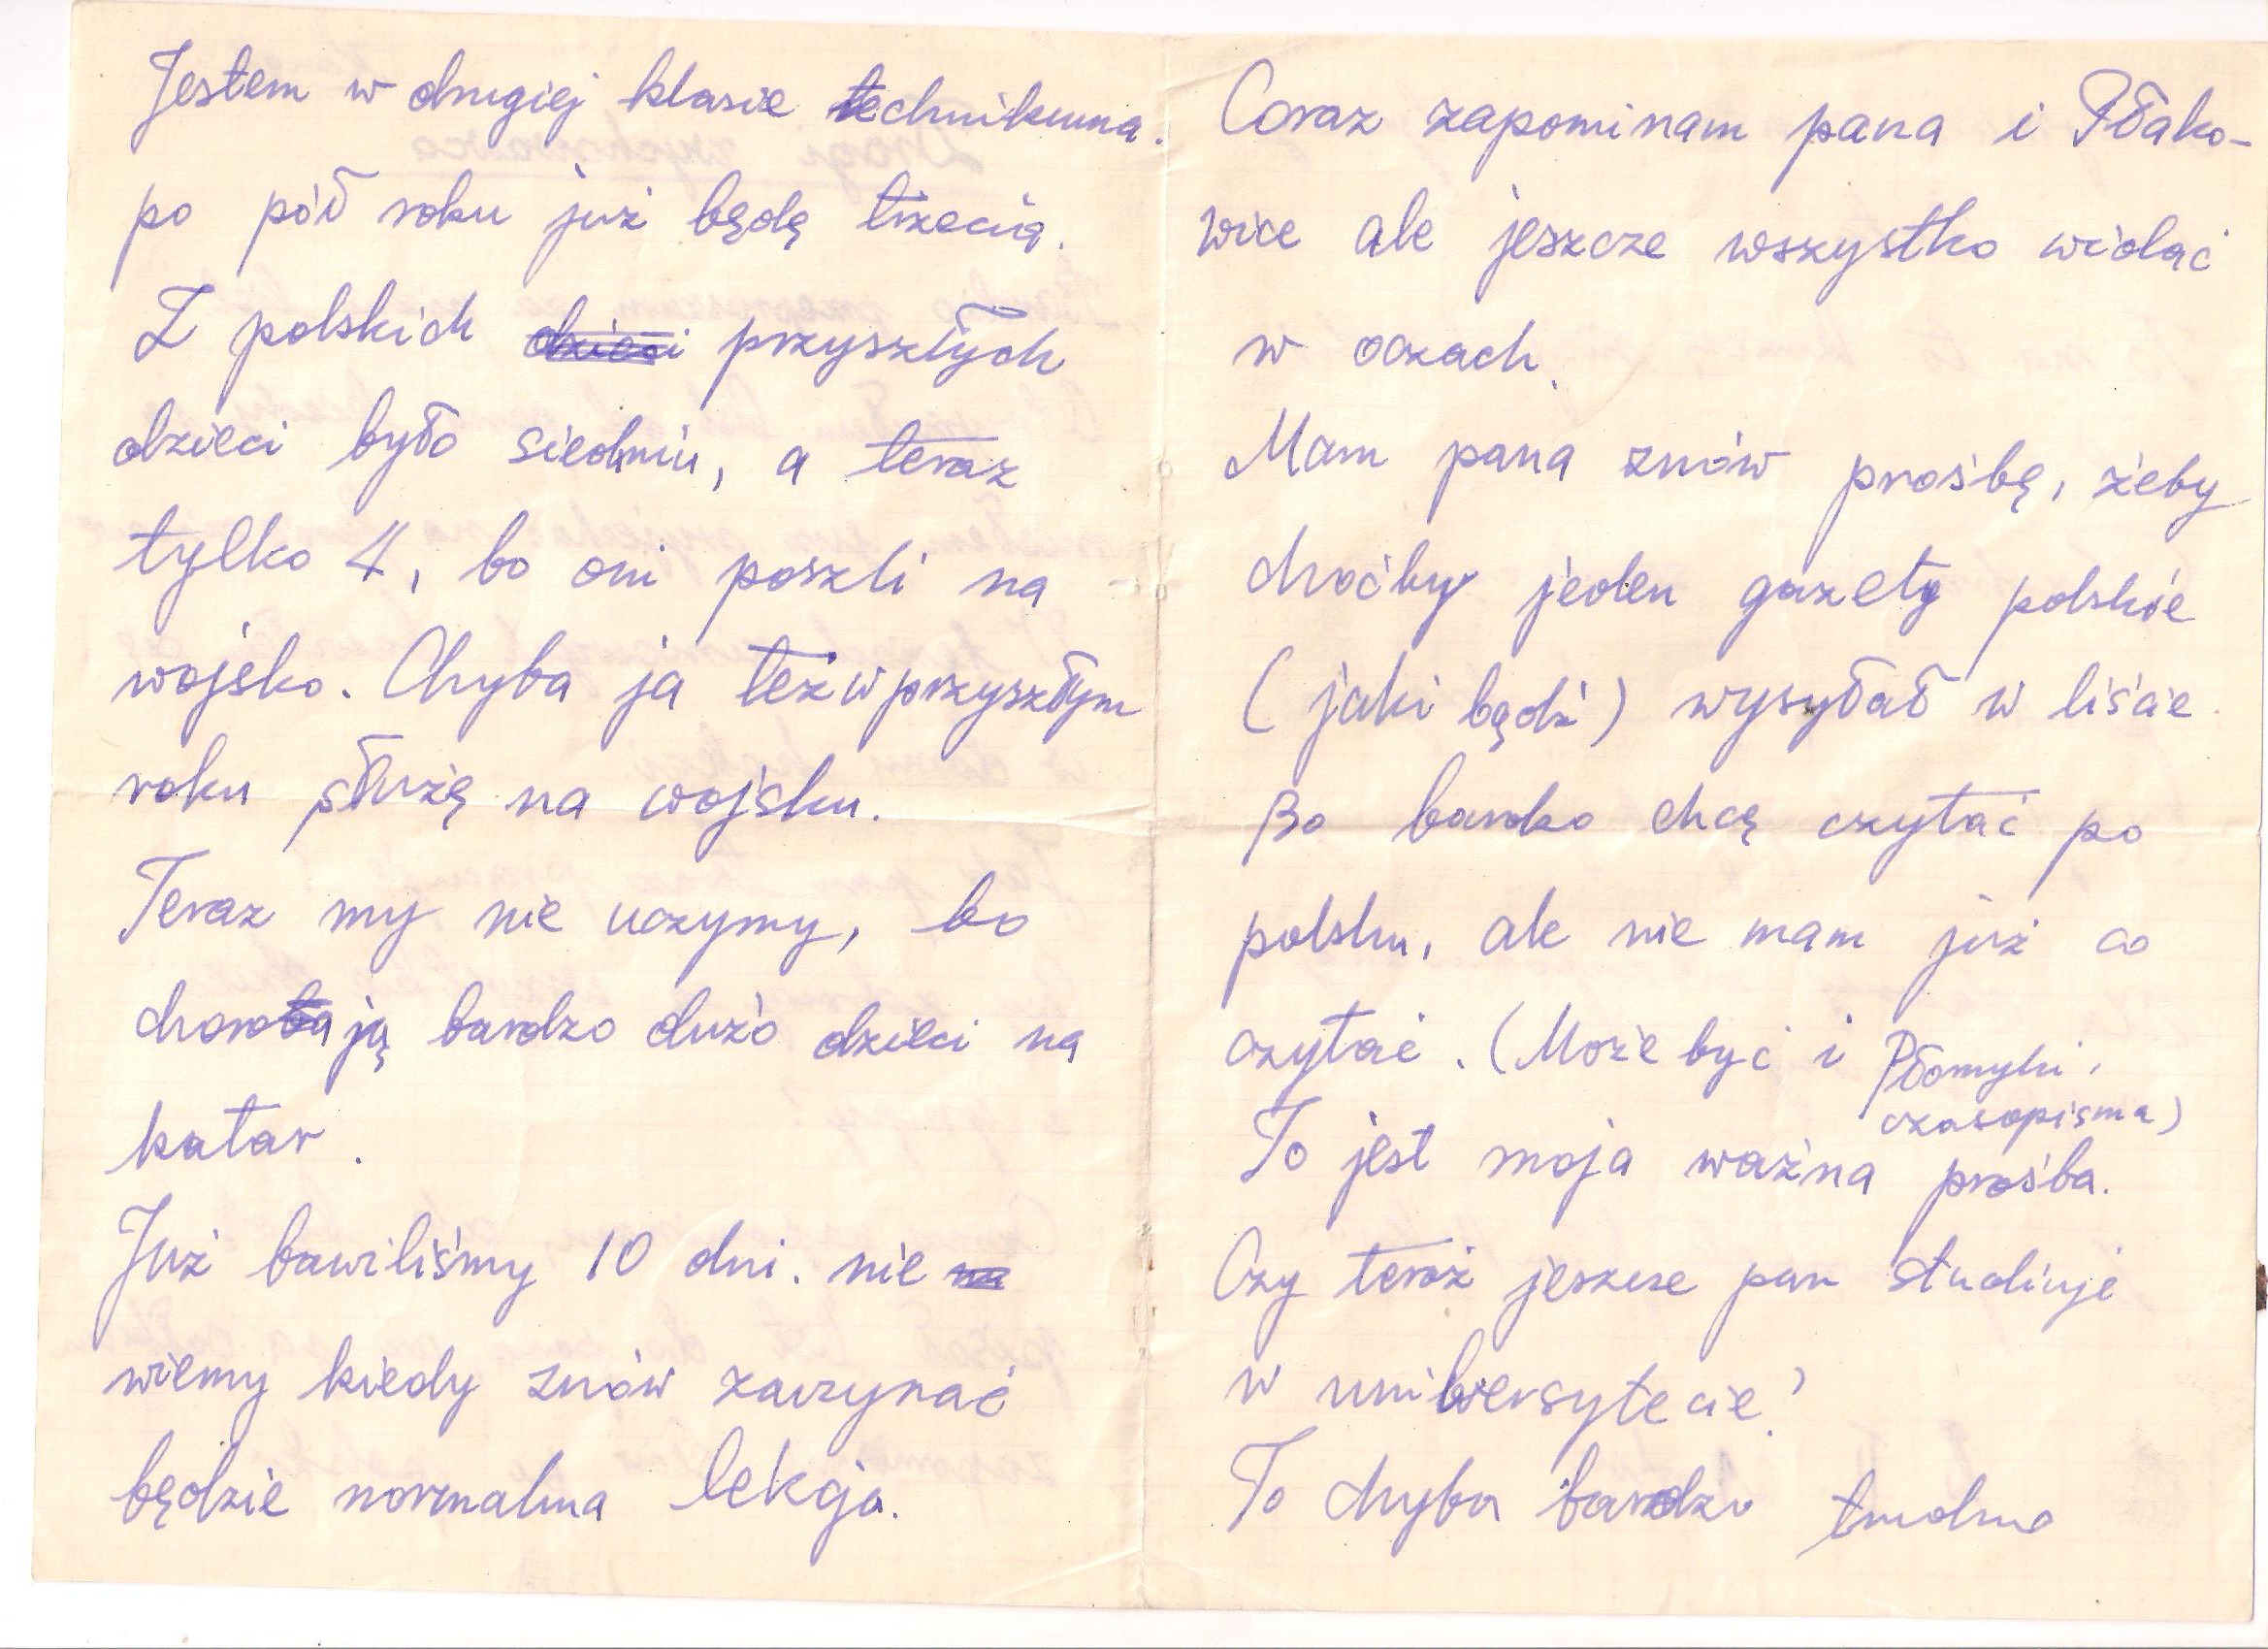 Jestem w drugiej klasie technikuma.
po pół roku już będę trzecią.
Z polskich dzieci przyszłych
dzieci było siedmiu, a teraz
tylko 4, bo oni poszli na
wojsko. Chyba ja też w przyszłym
roku służę na wojsku.
Teraz my nie uczymy, bo
chorobają bardzo dużo dzieci na
katar.
Już bawiliśmy 10 dni. nie na
wiemy kiedy znów zaczynać
będzie normalna lekcja.
Coraz zapominam pana i Płako-
wice ale jeszcze wszystko widać
w oczach.
Mam pana znów prośbę, żeby
choćby jeden gazety polskie
(jaki bądź) wysyłał w liście.
Bo bardzo chcę czytać po
polsku, ale nie mam już co
czytać. (Może być i Płomyki,
czasopisma)
To jest moja ważna prośba.
Czy teraż jeszcze pan studiuje
w uniwersytecie?
To chyba bardzo trudno